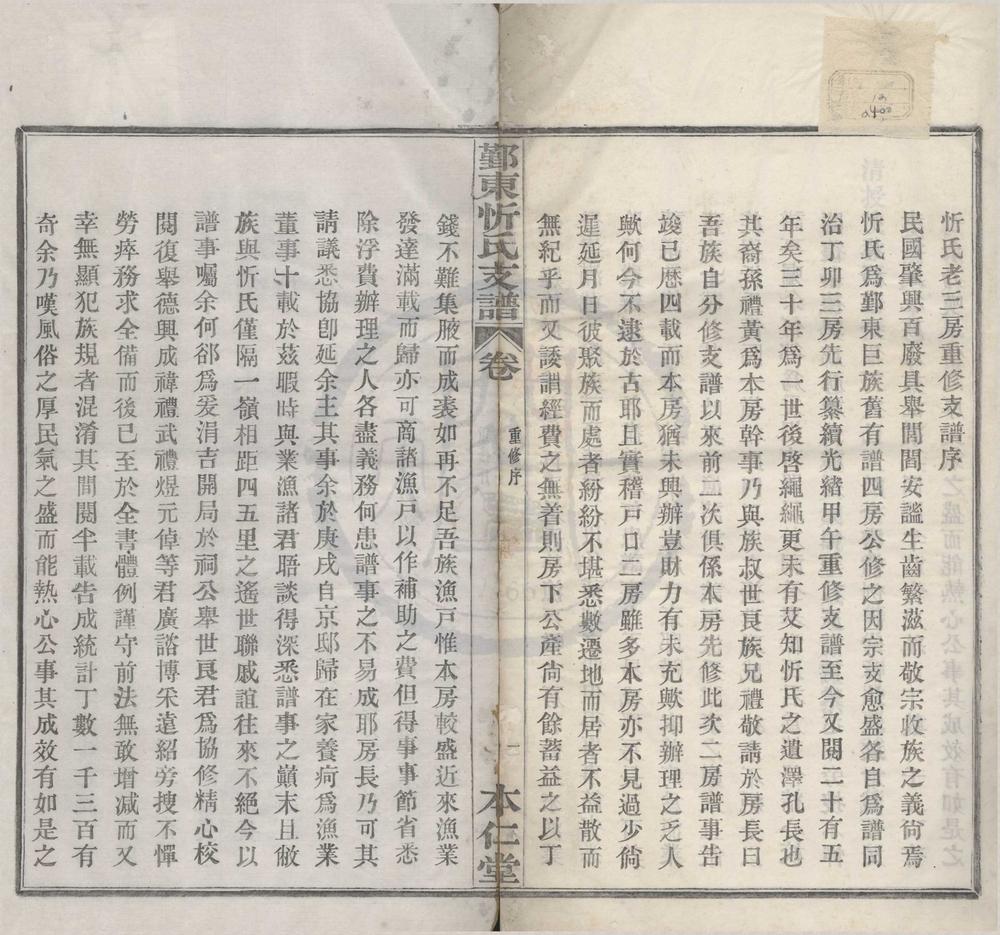 忻氏老三房重修支譜序
民國肇興百廢具舉閭閻安謐生齒繁滋而敬宗收族之義尙焉
忻氏爲鄞東巨族舊有譜四房公修之因宗支愈盛各自爲譜同
治丁卯三房先行纂續光緒甲午重修支譜至今又閱二十有五
年矣三十年爲一世後啓繩繩更未有艾知忻氏之遺澤孔長也
其裔孫禮黃爲本房幹事乃與族叔世良族兄禮敬請於房長曰
吾族自分修支譜以來前二次俱係本房先修此次二房譜事告
竣已歷四載而本房猶未興辦豈財力有未充歟抑辦理之乏人
歟何今不逮於古耶且實稽戶口二房雖多本房亦不見過少倘
遲延月日彼聚族而處者紛紛不堪悉數遷地而居者不益散而
無紀乎而又諉謂經費之無着則房下公產尙有餘蓄益之以丁
鄞東忻氏支譜
卷
重修序
本仁堂
錢不難集腋而成裘如再不足吾族漁戶惟本房較盛近來漁業
發達滿載而歸亦可商諸漁戶以作補助之費但得事事節省悉
除浮費辦理之人各盡義務何患譜事之不易成耶房長乃可其
請議悉協卽延余主其事余於庚戌自京邸歸在家養疴爲漁業
董事十載於茲暇時與業漁諸君晤談得深悉譜事之顚末且倣
族與忻氏僅隔一嶺相距四五里之遙世聯戚誼往來不絕今以
譜事囑余何郤爲爰涓吉開局於祠公舉世良君爲協修精心校
閱復舉德興成禕禮武禮煜元倬等君廣諮博采遠紹旁搜不憚
勞瘁務求全備而後已至於全書體例謹守前法無敢增減而又
幸無顯犯族規者混淆其間閱半載告成統計丁數一千三百有
奇余乃嘆風俗之厚民氣之盛而能熱心公事其成效有如是之